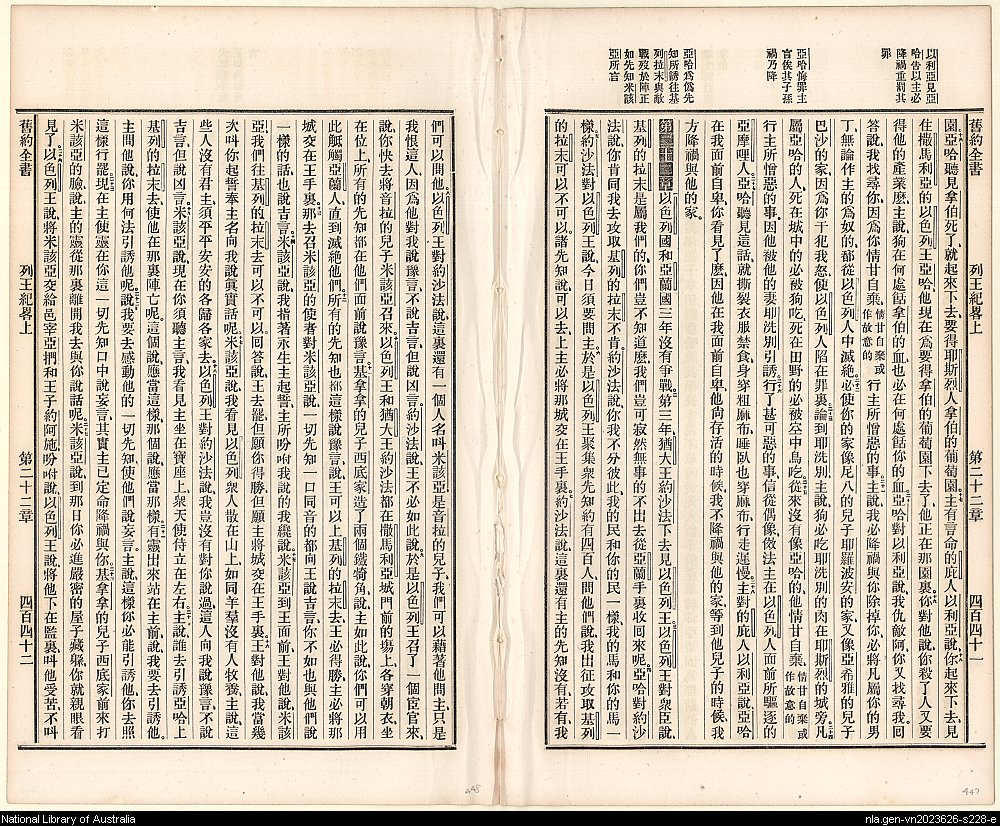 以利亞見亞
哈告以主必
降禍重罰其
罪
亞哈悔罪主
宥俟其子孫
禍乃降
亞哈爲僞先
知所誘往基
列拉末與敵
戰歿於陣正
如先知米該
亞所言
舊約全書 列王紀畧上 第二十二章 四百四十一
園亞哈聽見拿伯死了就起來下去要得耶斯烈人拿伯的葡萄園主有言命的庇人以利亞說你起來下去見
住撒馬利亞的以色列王亞哈他現在爲要得拿伯的葡萄園下去了他正在那園裏你對他說你殺了人又要
得他的產業麽主說狗在何處餂拿伯的血也必在何處餂你的血亞哈對以利亞說我仇敵阿你又找尋我回
答說我找尋你因爲你情甘自棄情甘自棄或作故意的行主所憎惡的事主說我必降禍與你除掉你必將凡屬你的男
丁無論作主的爲奴的都從以色列人中滅絕必使你的家像尼八的兒子耶羅波安的家又像亞希雅的兒子
巴沙的家因爲你干犯我怒使以色列人陷在罪裏論到耶洗別主說狗必吃耶洗別的肉在耶斯烈的城旁凡
屬亞哈的人死在城中的必被狗吃死在田野的必被空中鳥吃從來沒有像亞哈的他情甘自棄情甘自棄或作故意的
行主所憎惡的事因他被他的妻耶洗別引誘行了甚可惡的事信從偶像傚法主在以色列人面前所驅逐的
亞摩哩人亞哈聽見這話就撕裂衣服禁食身穿粗麻布睡臥也穿麻布行走遲慢主對的庇人以利亞說亞哈
在我面前自卑你看見了麽因他在我面前自卑他尙存活的時候我不降禍與他的家等到他兒子的時候我
方降禍與他的家
第二十二章以色列國和亞蘭國三年沒有爭戰第三年猶大王約沙法下去見以色列王以色列王對衆臣說
基列的拉末是屬我們的你們豈不知道麽我們豈可寂然無事的不出去從亞蘭手裏收回來呢亞哈對約沙
法說你肯同我去攻取基列的拉末不肯約沙法說你我不分彼此我的民和你的民一樣我的馬和你的馬一
樣約沙法對以色列王說今日須要問主於是以色列王聚集衆先知約有四百人問他們說我出征攻取基列
的拉末可以不可以諸先知說可以去上主必將那城交在王手裏約沙法說這裏還有主的先知沒有若有我
們可以問他以色列王對約沙法說這裏還有一個人名叫米該亞是音拉的兒子我們可以藉著他問主只是
我恨這人因爲他對我說豫言不說吉言但說凶言約沙法說王不必如此說於是以色列王召了一個臣宦來
說你快去將音拉的兒子米該亞召來以色列王和猶大王約沙法都在撒馬利亞城門前的塲上各穿朝衣坐
在位上所有的先知都在他們面前說豫言基拿拿的兒子西底家造了兩個鐵犄角說主如此說你們可以用
此觝觸亞蘭人直到滅絕他們所有的先知也都這樣說豫言說王可以上基列的拉末去王必得勝主必將那
城交在王手裏那去召米該亞的使者對米該亞說一切先知一口同音的都向王說吉言你不如也與他們說
一樣的話也說吉言米該亞說我指著永生主起誓主所吩咐我說的我纔說米該亞到王面前王對他說米該
亞我們往基列的拉末去可以不可以回答說王去罷但願你得勝但願主將城交在王手裏王對他說我當幾
次叫你起誓奉主名向我說眞實話呢米該亞說我看見以色列衆人散在山上如同羊羣沒有人牧養主說這
些人沒有君主須平平安安的各歸各家去以色列王對約沙法說我豈沒有對你說過這人向我說豫言不說
吉言但說凶言米該亞說現在你須聽主言我看見主坐在寶座上衆天使侍立在左右主說誰去引誘亞哈上
基列的拉末去使他在那裏陣亡呢這個說應當這樣那個說應當那樣有靈出來站在主前說我要去引誘他
主問他說你用何法引誘他呢說我要去感動他的一切先知使他們說妄言主說這樣你必能引誘他你去照
這樣行罷現在主使靈在你這一切先知口中說妄言其實主已定命降禍與你基拿拿的兒子西底家前來打
米該亞的臉說主的靈從那裏離開我去與你說話呢米該亞說到那日你必進嚴密的屋子藏躱你就親眼看
見了以色列王說將米該亞交給邑宰亞捫和王子約阿施吩咐說以色列王說將他下在監裏叫他受苦不叫
舊約全書 列王紀畧上 第二十二章 四百四十二
448
447
National Library of Australia
nla.gen-vn2023626-s228-e